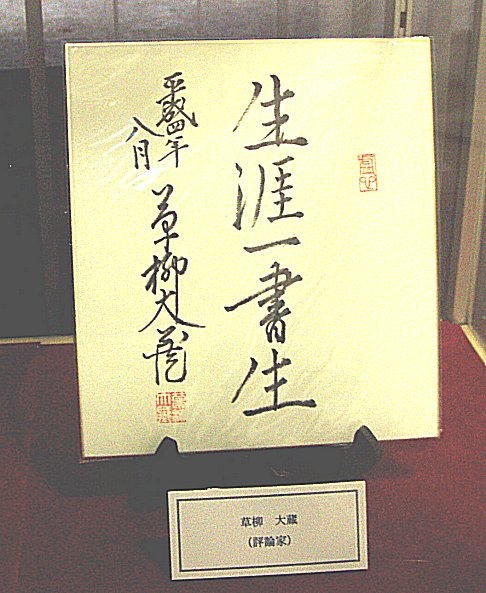 生涯一書生
平成四年
八月
草柳大蔵
草柳 大蔵
(評論家)